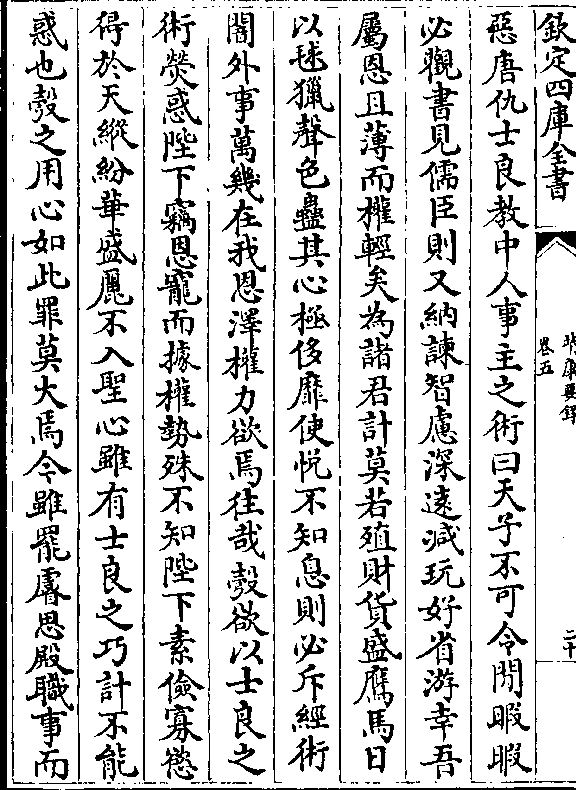 欽定四庫全書
惡唐仇士良教中人事主之術曰天子不可令閒暇暇
必觀書見儒臣則又納諫智慮深遠減玩好省游幸吾
屬恩且薄而權輕矣為諸君計莫若殖財貨盛鷹馬日
以毬獵聲色蠱其心極侈靡使悦不知息則必斥經術
闇外事萬幾在我恩澤權力欲焉往哉㲄欲以士良之
術熒惑陛下竊恩寵而據權勢殊不知陛下素儉寡慾
得於天縱紛華盛麗不入聖心雖有士良之巧計不能
惑也㲄之用心如此罪莫大焉今雖罷睿思殿職事而
卷五
二十